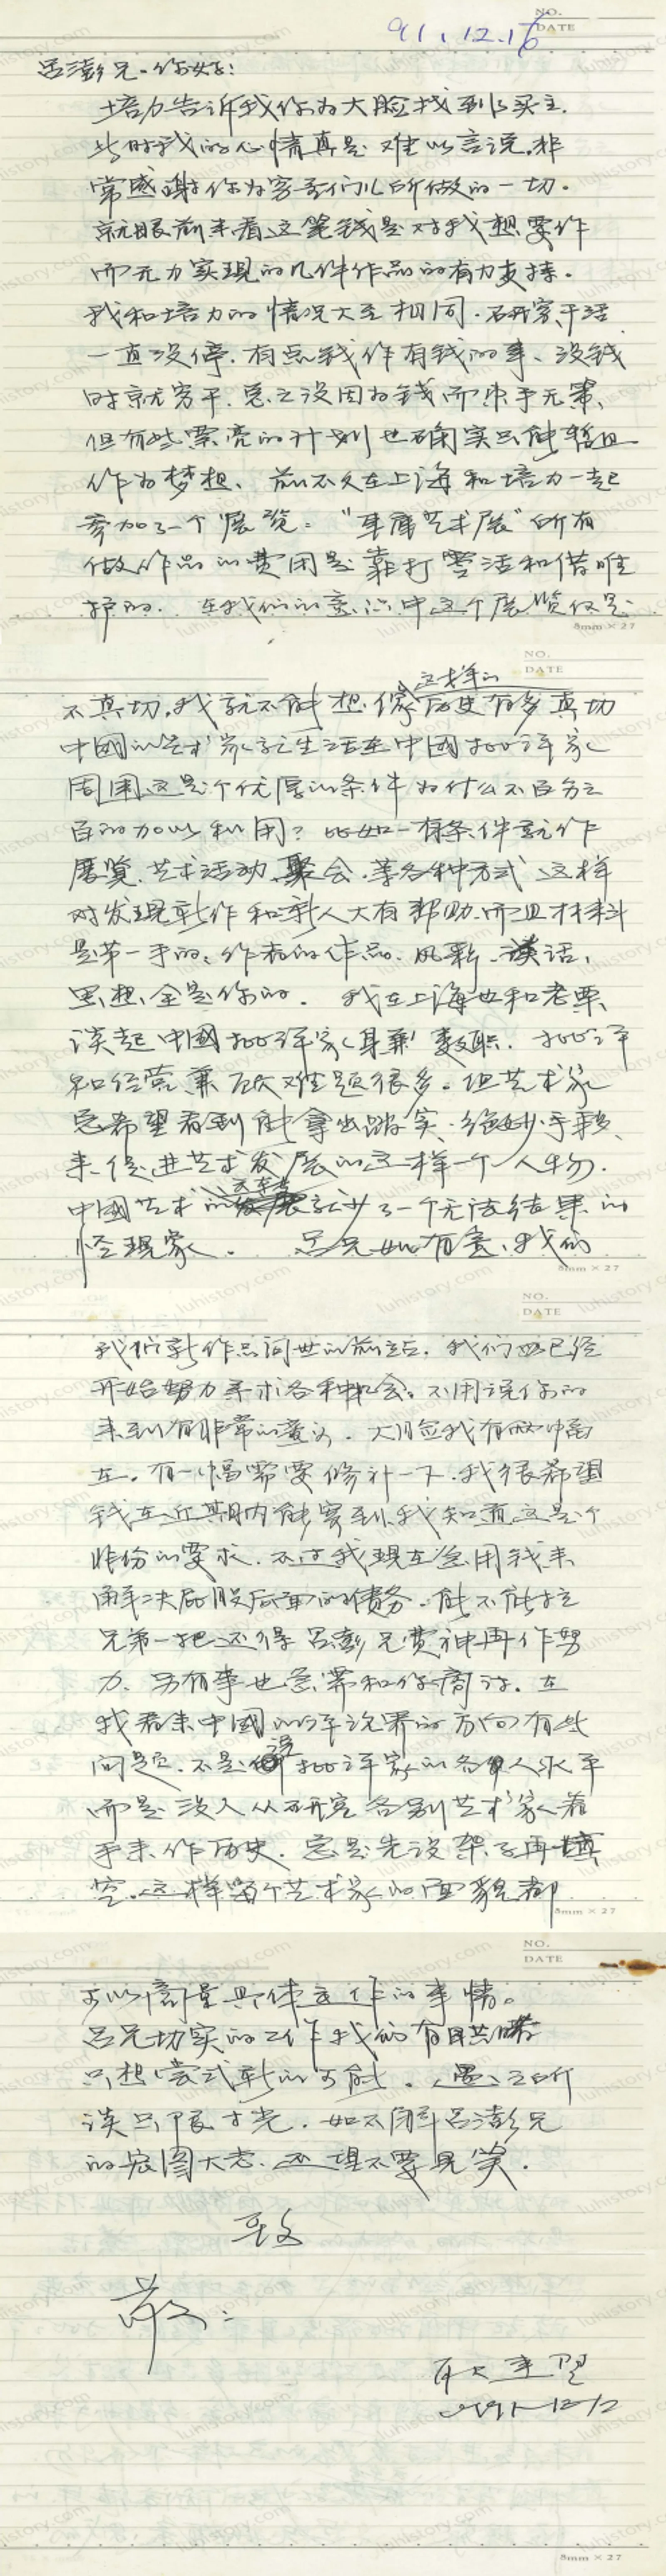 NO.
91.12.16
DATE
吕澎兄.你好:
培力告诉我你为大脸找到了买主.
此时我的心情真是难以言说,非
常感谢你为穷哥们儿所做的一切.
就眼前来看这笔钱是对我想要作
而无力实现的几件作品的有力支持.
我和培力的情况大至相同.研究、干活
一直没停.有点钱作有钱的事、没钱
时就穷干.总之没因为钱而束手无策、
但有些漂亮的计划也确实只能暂且
作为梦想、前不久在上海和培力一起
参加了一个展览:“车库艺术展”所有
做作品的费用是靠打零活和借唯
护的.在我们的意识中这个展览仅是
8mm × 27
NO.
DATE
这样的
不真切,我就不能想像历史有多真切
中國的艺术家就生活在中國批评家
周围这是个优厚的条件为什么不百分之
百的加以利用?比如一有条件就作
展览、艺术活动、聚会、等各种方式、这样
对发现新作和新人大有帮助.而且材料
是第一手的:作者的作品、风彩、谈话、
思想全是你的.我在上海也和老栗
谈起中國批评家身兼数职.批评
和经营兼顾难题很多.但艺术家
总希望看到能拿出踏实、绝妙手段、
来促进艺术发展的这样一个人物.
中國艺术的发展就少了一个无法结果的
怪现象.吕兄如有意、我们
8mm × 27
NO.
DATE
我们新作品问世的前站.我们也已经
开始努力寻求各种机会.不用说你的
来到有非常的意义.大脸我有两幅
在.有一幅需要修补一下.我很希望
钱在近期内能寄到.我知道这是个
非份的要求.不过我现在急用钱来
解决屁股后面的债务.能不能拉
兄弟一把还得吕澎兄费神再作努
力.另有事也急需和你商讨.在
我看来中國的评论界的方向有些
问题.不是说批评家的各人水平
而是没人从研究各别艺术家着
手来作历史.总是先设架子再填
空.这样当个艺术家的面貌都
8mm × 27
NO.
DATE
可以商量具体运作的事情.
吕兄切实的工作我们有目共睹
只想尝试新的可能.愚之所
谈只限寸光.如不解吕澎兄
的宏图大志、还望不要见笑.
致
敬:
耿建翌
1991-12/2
8mm × 27